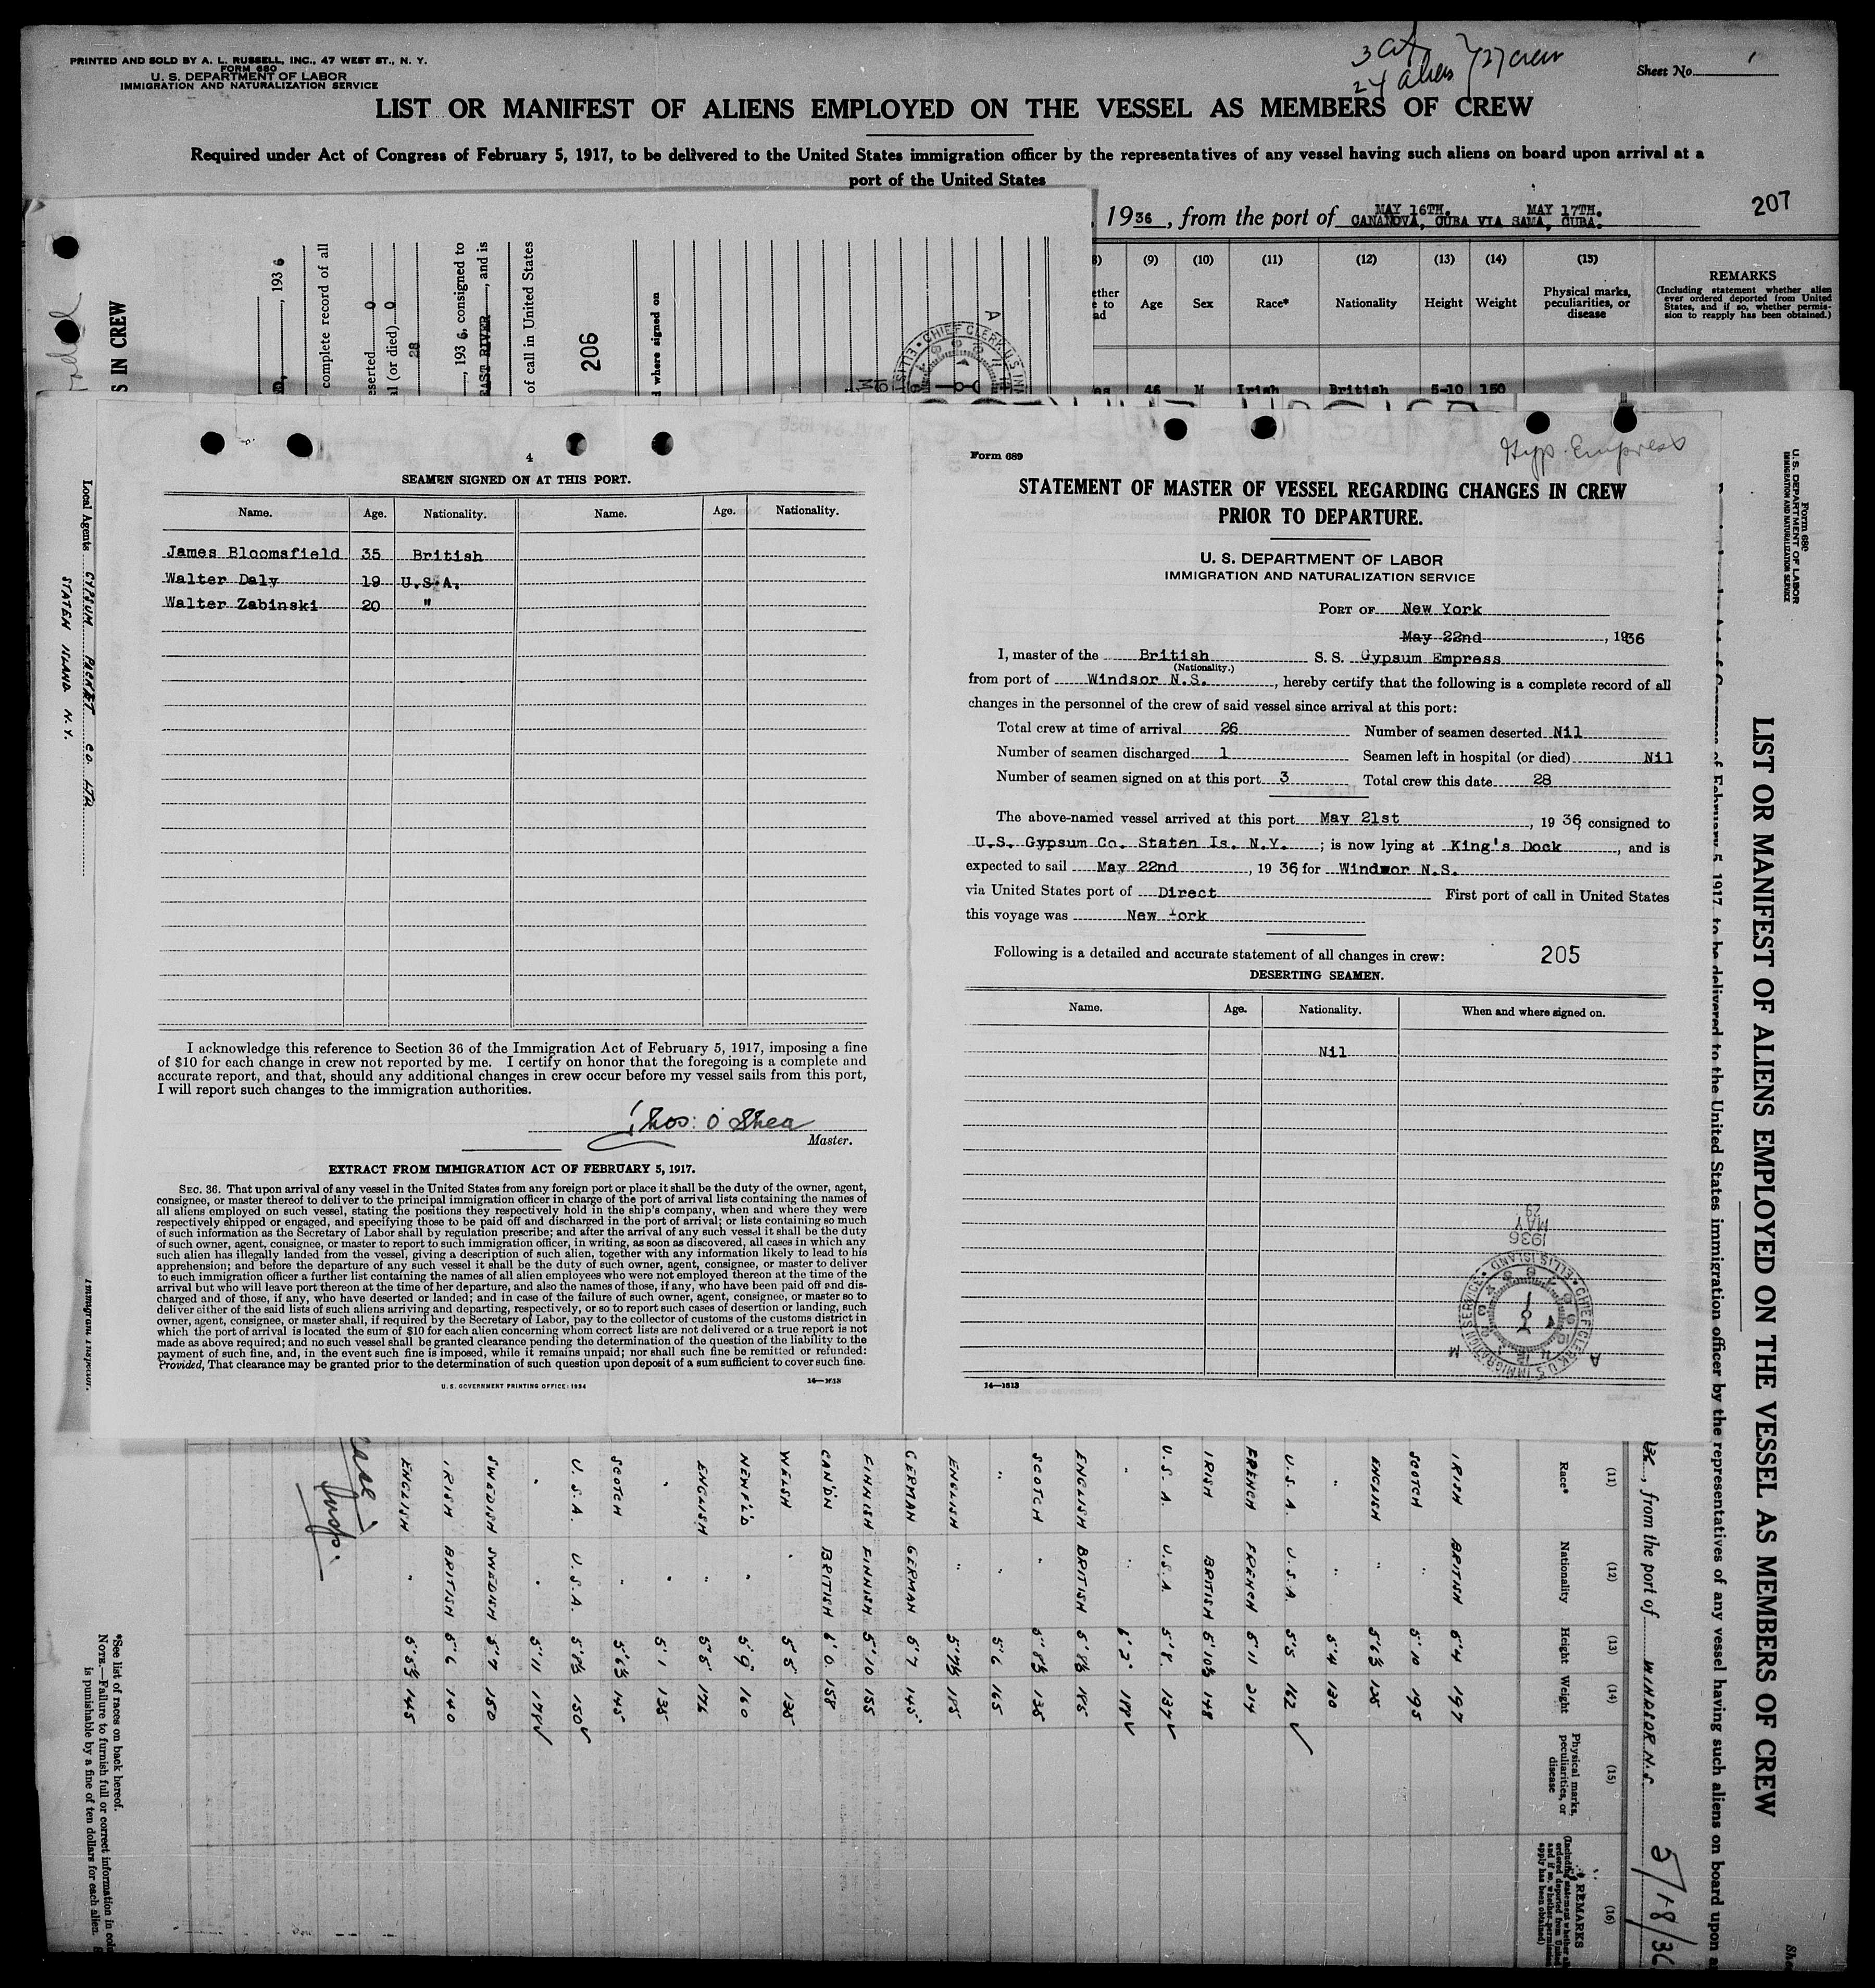 PRINTED AND SOLD BY A. L. RUSSELL, INC., 47 WEST ST., N. Y.
FORM 680
U. S. DEPARTMENT OF LABOR
IMMIGRATION AND NATURALIZATION SERVICE
3 Cit
24 aliens 27 crew
Sheet No. 1
LIST OR MANIFEST OF ALIENS EMPLOYED ON THE VESSEL AS MEMBERS OF CREW
Required under Act of Congress of February 5, 1917, to be delivered to the United States immigration officer by the representatives of any vessel having such aliens on board upon arrival at a
port of the United States
, 1936, from the port of MAY 16TH. MAY 17TH.
CANANOVA, CUBA VIA SAMA, CUBA.
207
(9) (10) (11) (12) (13) (14) (15)
Age Sex Race* Nationality Height Weight Physical marks, peculiarities, or disease
REMARKS
(Including statement whether alien
ever ordered deported from United
States, and if so, whether permis-
sion to reapply has been obtained.)
46 M Irish British 5-10 150
S IN CREW
, 193 6
complete record of all
eserted 0
l (or died) 0
28
, 193 6, consigned to
EAST RIVER, and is
of call in United States
206
d where signed on
4
SEAMEN SIGNED ON AT THIS PORT.
Name. Age. Nationality. Name. Age. Nationality.
James Bloomsfield 35 British
Walter Daly 19 U.S.A.
Walter Zabinski 20 "
I acknowledge this reference to Section 36 of the Immigration Act of February 5, 1917, imposing a fine
of $10 for each change in crew not reported by me. I certify on honor that the foregoing is a complete and
accurate report, and that, should any additional changes in crew occur before my vessel sails from this port,
I will report such changes to the immigration authorities.
Thos: O'Shea
Master.
EXTRACT FROM IMMIGRATION ACT OF FEBRUARY 5, 1917.
SEC. 36. That upon arrival of any vessel in the United States from any foreign port or place it shall be the duty of the owner, agent,
consignee, or master thereof to deliver to the principal immigration officer in charge of the port of arrival lists containing the names of
all aliens employed on such vessel, stating the positions they respectively hold in the ship's company, when and where they were
respectively shipped or engaged, and specifying those to be paid off and discharged in the port of arrival; or lists containing so much
of such information as the Secretary of Labor shall by regulation prescribe; and after the arrival of any such vessel it shall be the duty
of such owner, agent, consignee, or master to report to such immigration officer, in writing, as soon as discovered, all cases in which any
such alien has illegally landed from the vessel, giving a description of such alien, together with any information likely to lead to his
apprehension; and before the departure of any such vessel it shall be the duty of such owner, agent, consignee, or master to deliver
to such immigration officer a further list containing the names of all alien employees who were not employed thereon at the time of the
arrival but who will leave port thereon at the time of her departure, and also the names of those, if any, who have been paid off and dis-
charged and of those, if any, who have deserted or landed; and in case of the failure of such owner, agent, consignee, or master so to
deliver either of the said lists of such aliens arriving and departing, respectively, or so to report such cases of desertion or landing, such
owner, agent, consignee, or master shall, if required by the Secretary of Labor, pay to the collector of customs of the customs district in
which the port of arrival is located the sum of $10 for each alien concerning whom correct lists are not delivered or a true report is not
made as above required; and no such vessel shall be granted clearance pending the determination of the question of the liability to the
payment of such fine, and, in the event such fine is imposed, while it remains unpaid; nor shall such fine be remitted or refunded:
Provided, That clearance may be granted prior to the determination of such question upon deposit of a sum sufficient to cover such fine.
U. S. GOVERNMENT PRINTING OFFICE: 1934
14—1613
Form 689
Gyp. Empress
STATEMENT OF MASTER OF VESSEL REGARDING CHANGES IN CREW
PRIOR TO DEPARTURE.
U. S. DEPARTMENT OF LABOR
IMMIGRATION AND NATURALIZATION SERVICE
PORT OF New York
May 22nd, 1936
I, master of the British S.S. Gypsum Empress
(Nationality.)
from port of Windsor N.S., hereby certify that the following is a complete record of all
changes in the personnel of the crew of said vessel since arrival at this port:
Total crew at time of arrival 26 Number of seamen deserted Nil
Number of seamen discharged 1 Seamen left in hospital (or died) Nil
Number of seamen signed on at this port 3 Total crew this date 28
The above-named vessel arrived at this port May 21st, 19 36, consigned to
U.S. Gypsum Co. Staten Is. N.Y.; is now lying at King's Dock, and is
expected to sail May 22nd, 19 36, for Windwor N.S.
via United States port of Direct First port of call in United States
this voyage was New York
Following is a detailed and accurate statement of all changes in crew: 205
DESERTING SEAMEN.
Name. Age. Nationality. When and where signed on.
Nil
1936
MAY
29
CHIEF CLERK U.S. IMMIGRATION SERVICE • ELLIS ISLAND
A M
14—1613
Local Agents GYPSUM PACKET CO. LTD.
STATEN ISLAND N.Y.
Immigrant Inspector.
Form 680
U. S. DEPARTMENT OF LABOR
IMMIGRATION AND NATURALIZATION SERVICE
LIST OR MANIFEST OF ALIENS EMPLOYED ON THE VESSEL AS MEMBERS OF CREW
of February 5, 1917, to be delivered to the United States immigration officer by the representatives of any vessel having such aliens on board upon
, from the port of WINDSOR N.S. 5/18/36
(11) (12) (13) (14) (15) (16)
Race* Nationality Height Weight Physical marks, peculiarities, or disease REMARKS
IRISH BRITISH 5'4 197
SCOTCH " 5'10 195
ENGLISH " 5'6½ 125
" " 5'4 130
U.S.A. U.S.A. 5'5 162 ✓
FRENCH FRENCH 5'11 214
IRISH BRITISH 5'10½ 148
U.S.A. U.S.A. 5'8 137 ✓
" " 6'2" 188 ✓
ENGLISH BRITISH 5'8½ 185
SCOTCH " 5'8½ 135
" " 5'6 165
ENGLISH " 5'7½ 185
GERMAN GERMAN 5'7 145
FINNISH FINNISH 5'10 155
CAN'DN BRITISH 6'0 158
WELSH " 5'5 135
NEWF'LD " 5'9 160
ENGLISH " 5'5 176
" " 5'1 135
SCOTCH " 5'6½ 145
U.S.A. U.S.A. 5'8½ 150 ✓
" " 5'11 178 ✓
SWEDISH SWEDISH 5'7 150
IRISH BRITISH 5'6 140
ENGLISH " 5'5½ 145
Insp.
*See list of races on back hereof.
NOTE.—Failure to furnish full or correct information in
is punishable by a fine of ten dollars for each alien.